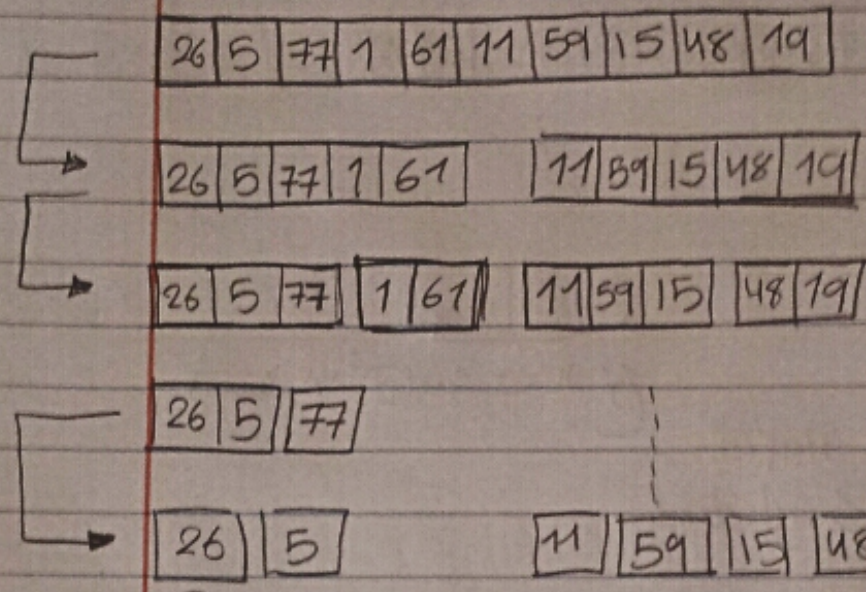 26 5 77 1 61 11 59 15 48 19
26 5 77 1 61 11 59 15 48 19
26 5 77 1 61 11 59 15 48 19
26 5 77
26 5 11 59 15 48